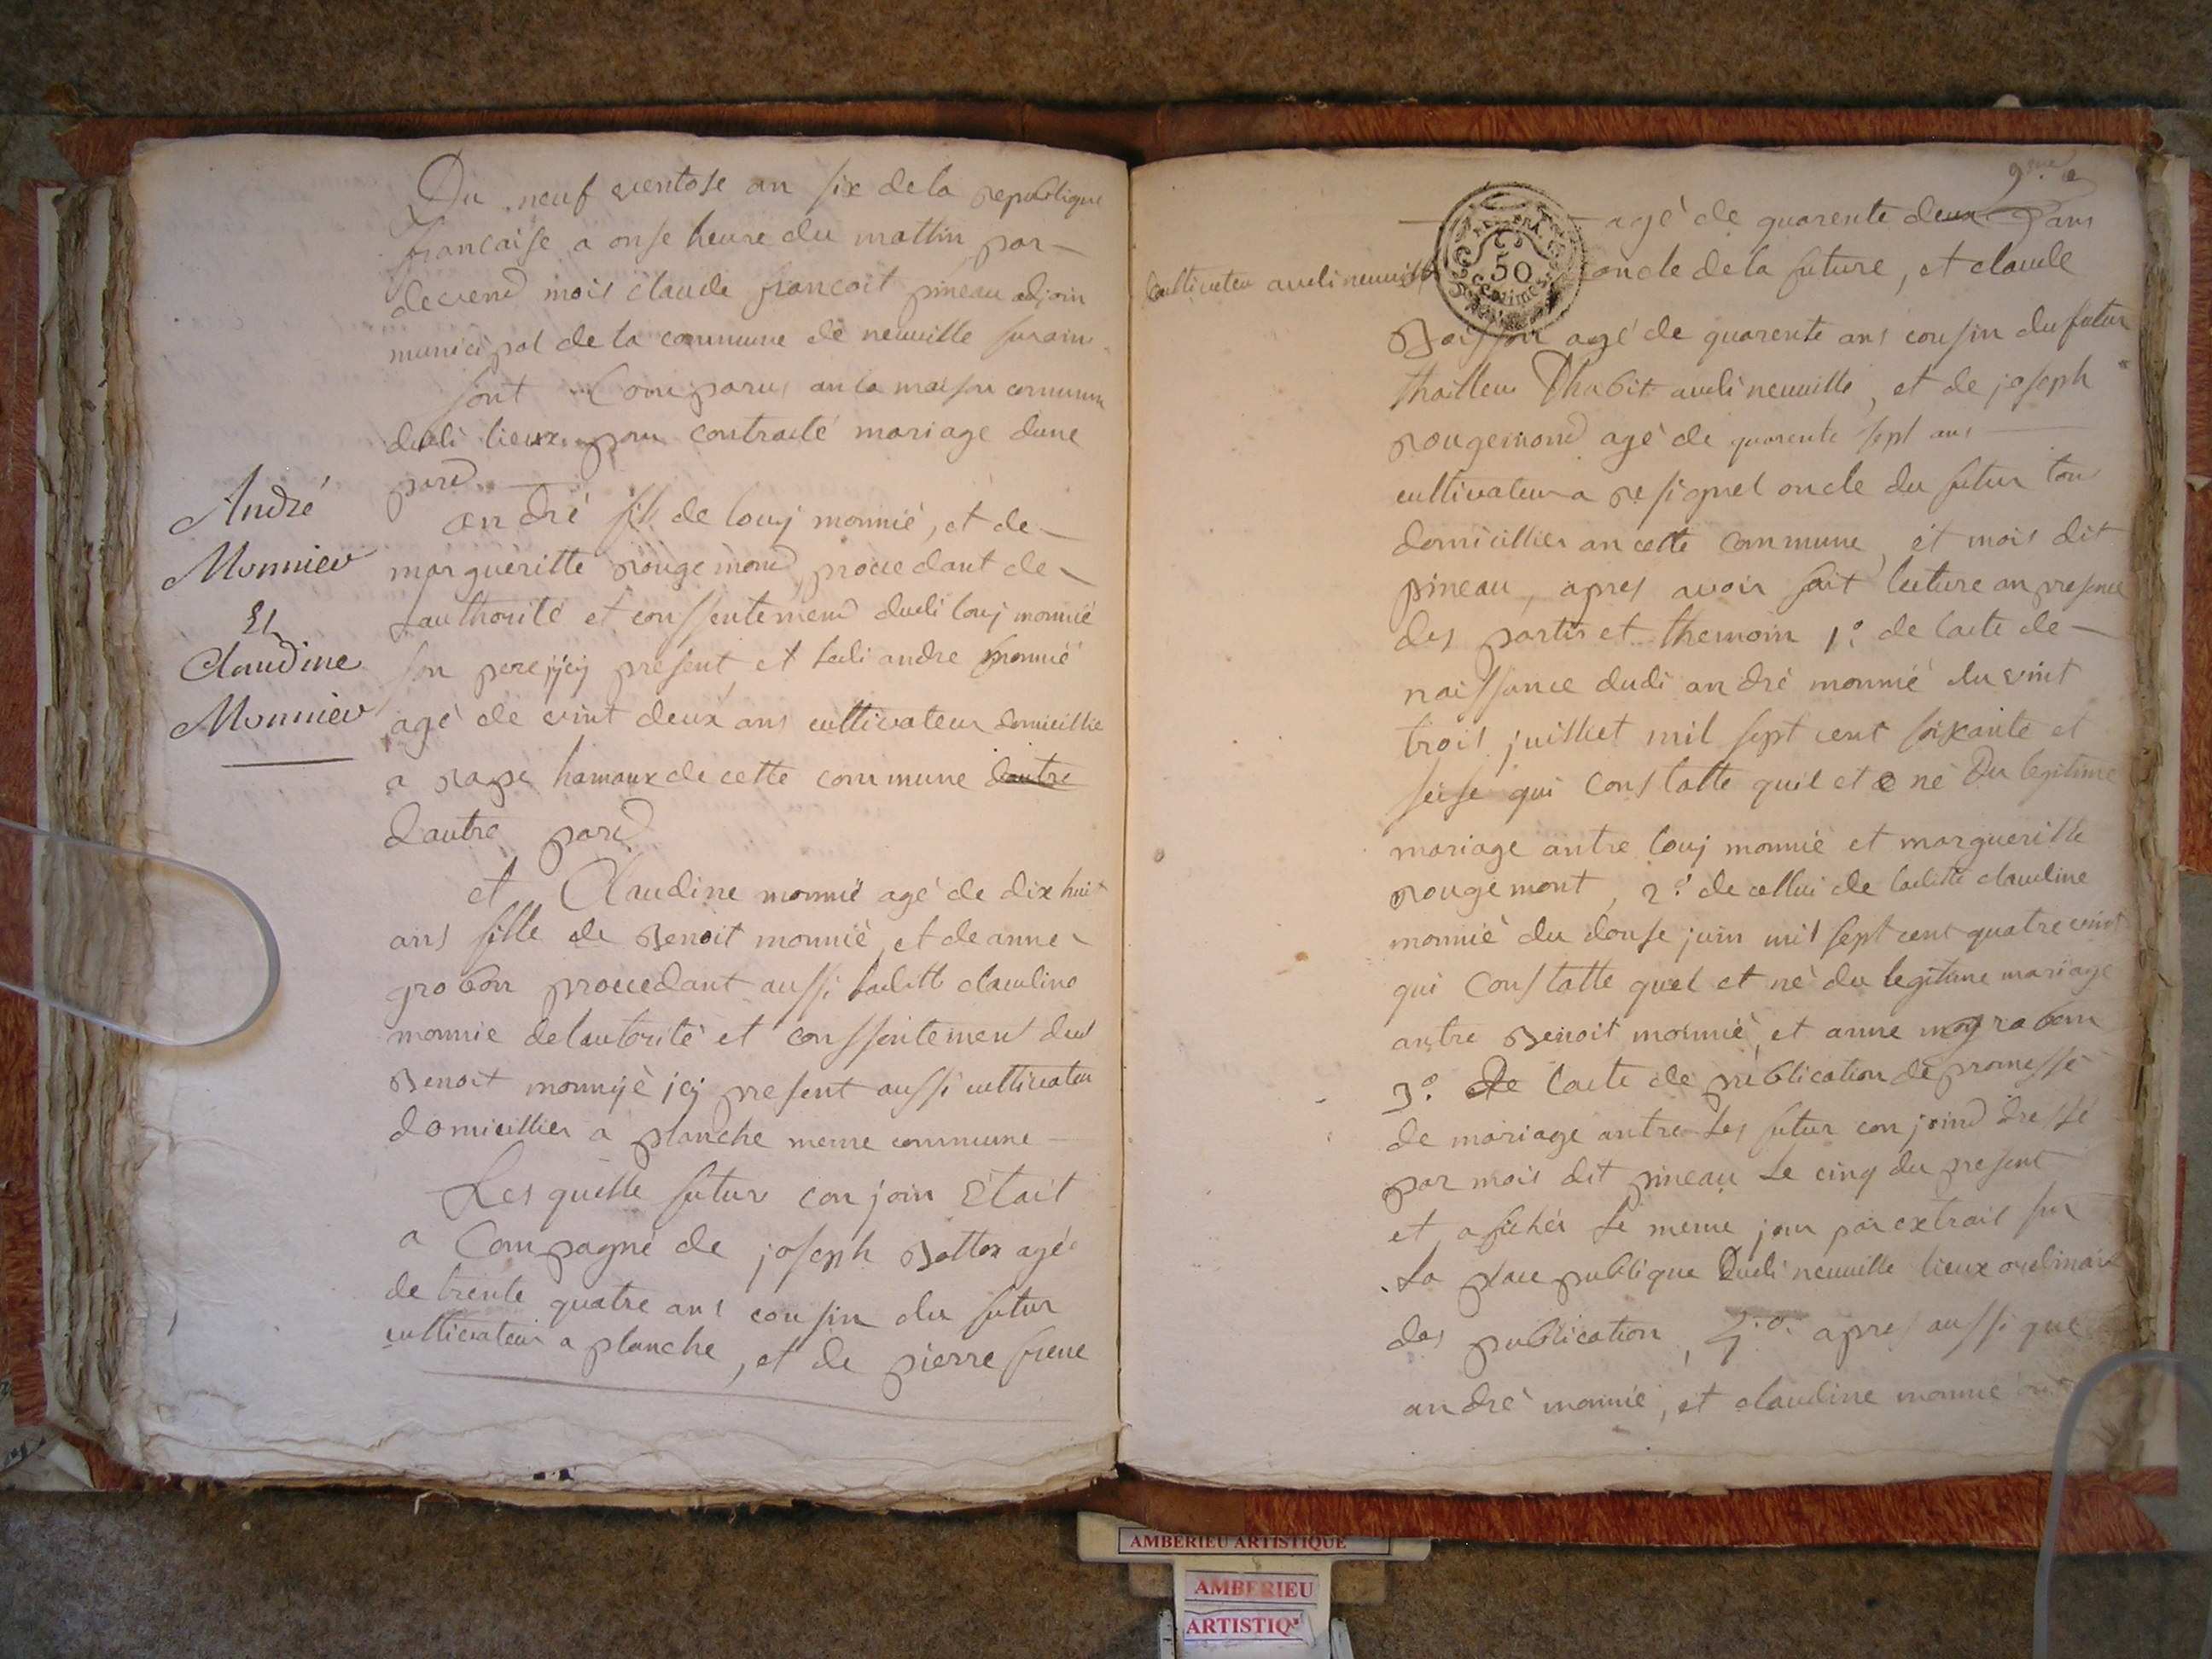 Du neuf ventose an six de la republique
francaise a onse heure du mattin par
devend mois claude francoit pineau adjoin
municipal de la commune de neuville surain
sont Comparus an la maison commun
dudi lieux pour contracté mariage dune
pard
André
Monnier
Et
Claudine
Monnier
andré fils de louj monnié, et de
margueritte rougemond procedant de
lauthorité et conssentemend dudi louj monnié
son pere jcij present et ledi andre monnié
agé de vint deux ans cultivateur domicillie
a rape hamaux de cette commune dautre
dautre pard
et Claudine monnié agé de dix huit
ans fille de Benoit monnié, et de anne
grobon procedant aussi laditte claudine
monnie delautorité et conssentement dud
Benoit monnijé jcj present aussi cultivateur
domicillier a planche meme commune
Les quelle futur conjoin était
a Compagné de joseph Bottex agé
de trente quatre ans cousin du futur
cultivateur a planche, et de pierre frene
9me
agé de quarente deux ans
Cultivateur audi neuville oncle de la future, et claude
50
Centimes
Boisson agé de quarente ans cousin du futur
thailleur Dhabit audi neuville, et de joseph
rougemond agé de quarente sept ans
cultivateur a resignel oncle du futur tou
domicillier an cette commune, et mois dit
pineau, apres avoir fait lecture an presence
des partis et themoin 1º de lacte de
naissance dudi andré monnié du vint
trois juilliet mil sept cent soixante et
seise qui constatte quil et né Du legitime
mariage antre louj monnié et margueritte
rougemont, 2º de cellui de laditte claudine
monnié du douse juin mil sept cent quatre vint
qui Constatte quel et né du legitime mariage
antre Benoit monnié, et anne grobon
3º De lacte de publication de promesse
de mariage antre Les futur conjoind dressé
par mois dit pineau Le cinq du present
et afichér Le meme jour par extrait sur
La place publique Dudi neuville lieux ordinaire
des publication, 4º apres aussi que
andré monnié, et claudine monnié
AMBERIEU ARTISTIQUE
AMBERIEU
ARTISTIQ